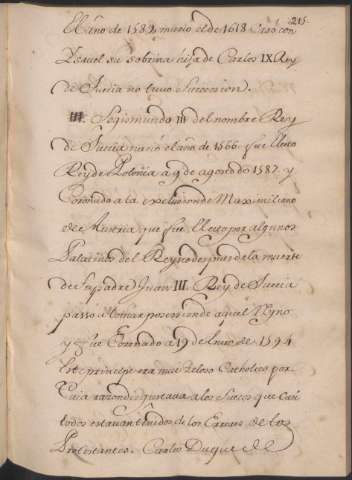 215.
El año de 1589 murio el de 1618 Caso con
Ysauel su sobrina hija de Carlos IX Rey
de Suecia no tuuo Succession.
III. Segismundo III del nombre Rey
de Suecia nació el año de 1566 fue Electo
Rey de Polonia a 9 de agosto de 1587. y
Coronado a la exclusion de Maximiliano
de Austria que fue Electo por algunos
Palatinos del Reyno despues de la muerte
de su padre Juan III. Rey de Suecia
passo a tomar posesion de aquel Reyno
y fue Coronado a 19 de Enero de 1594
Este principe era muy zeloso Catholico por
Cuia razon disgustaua a los Suecos que casi
todos estauan tenidos de los Errores de los
Protestantes. Carlos Duque de